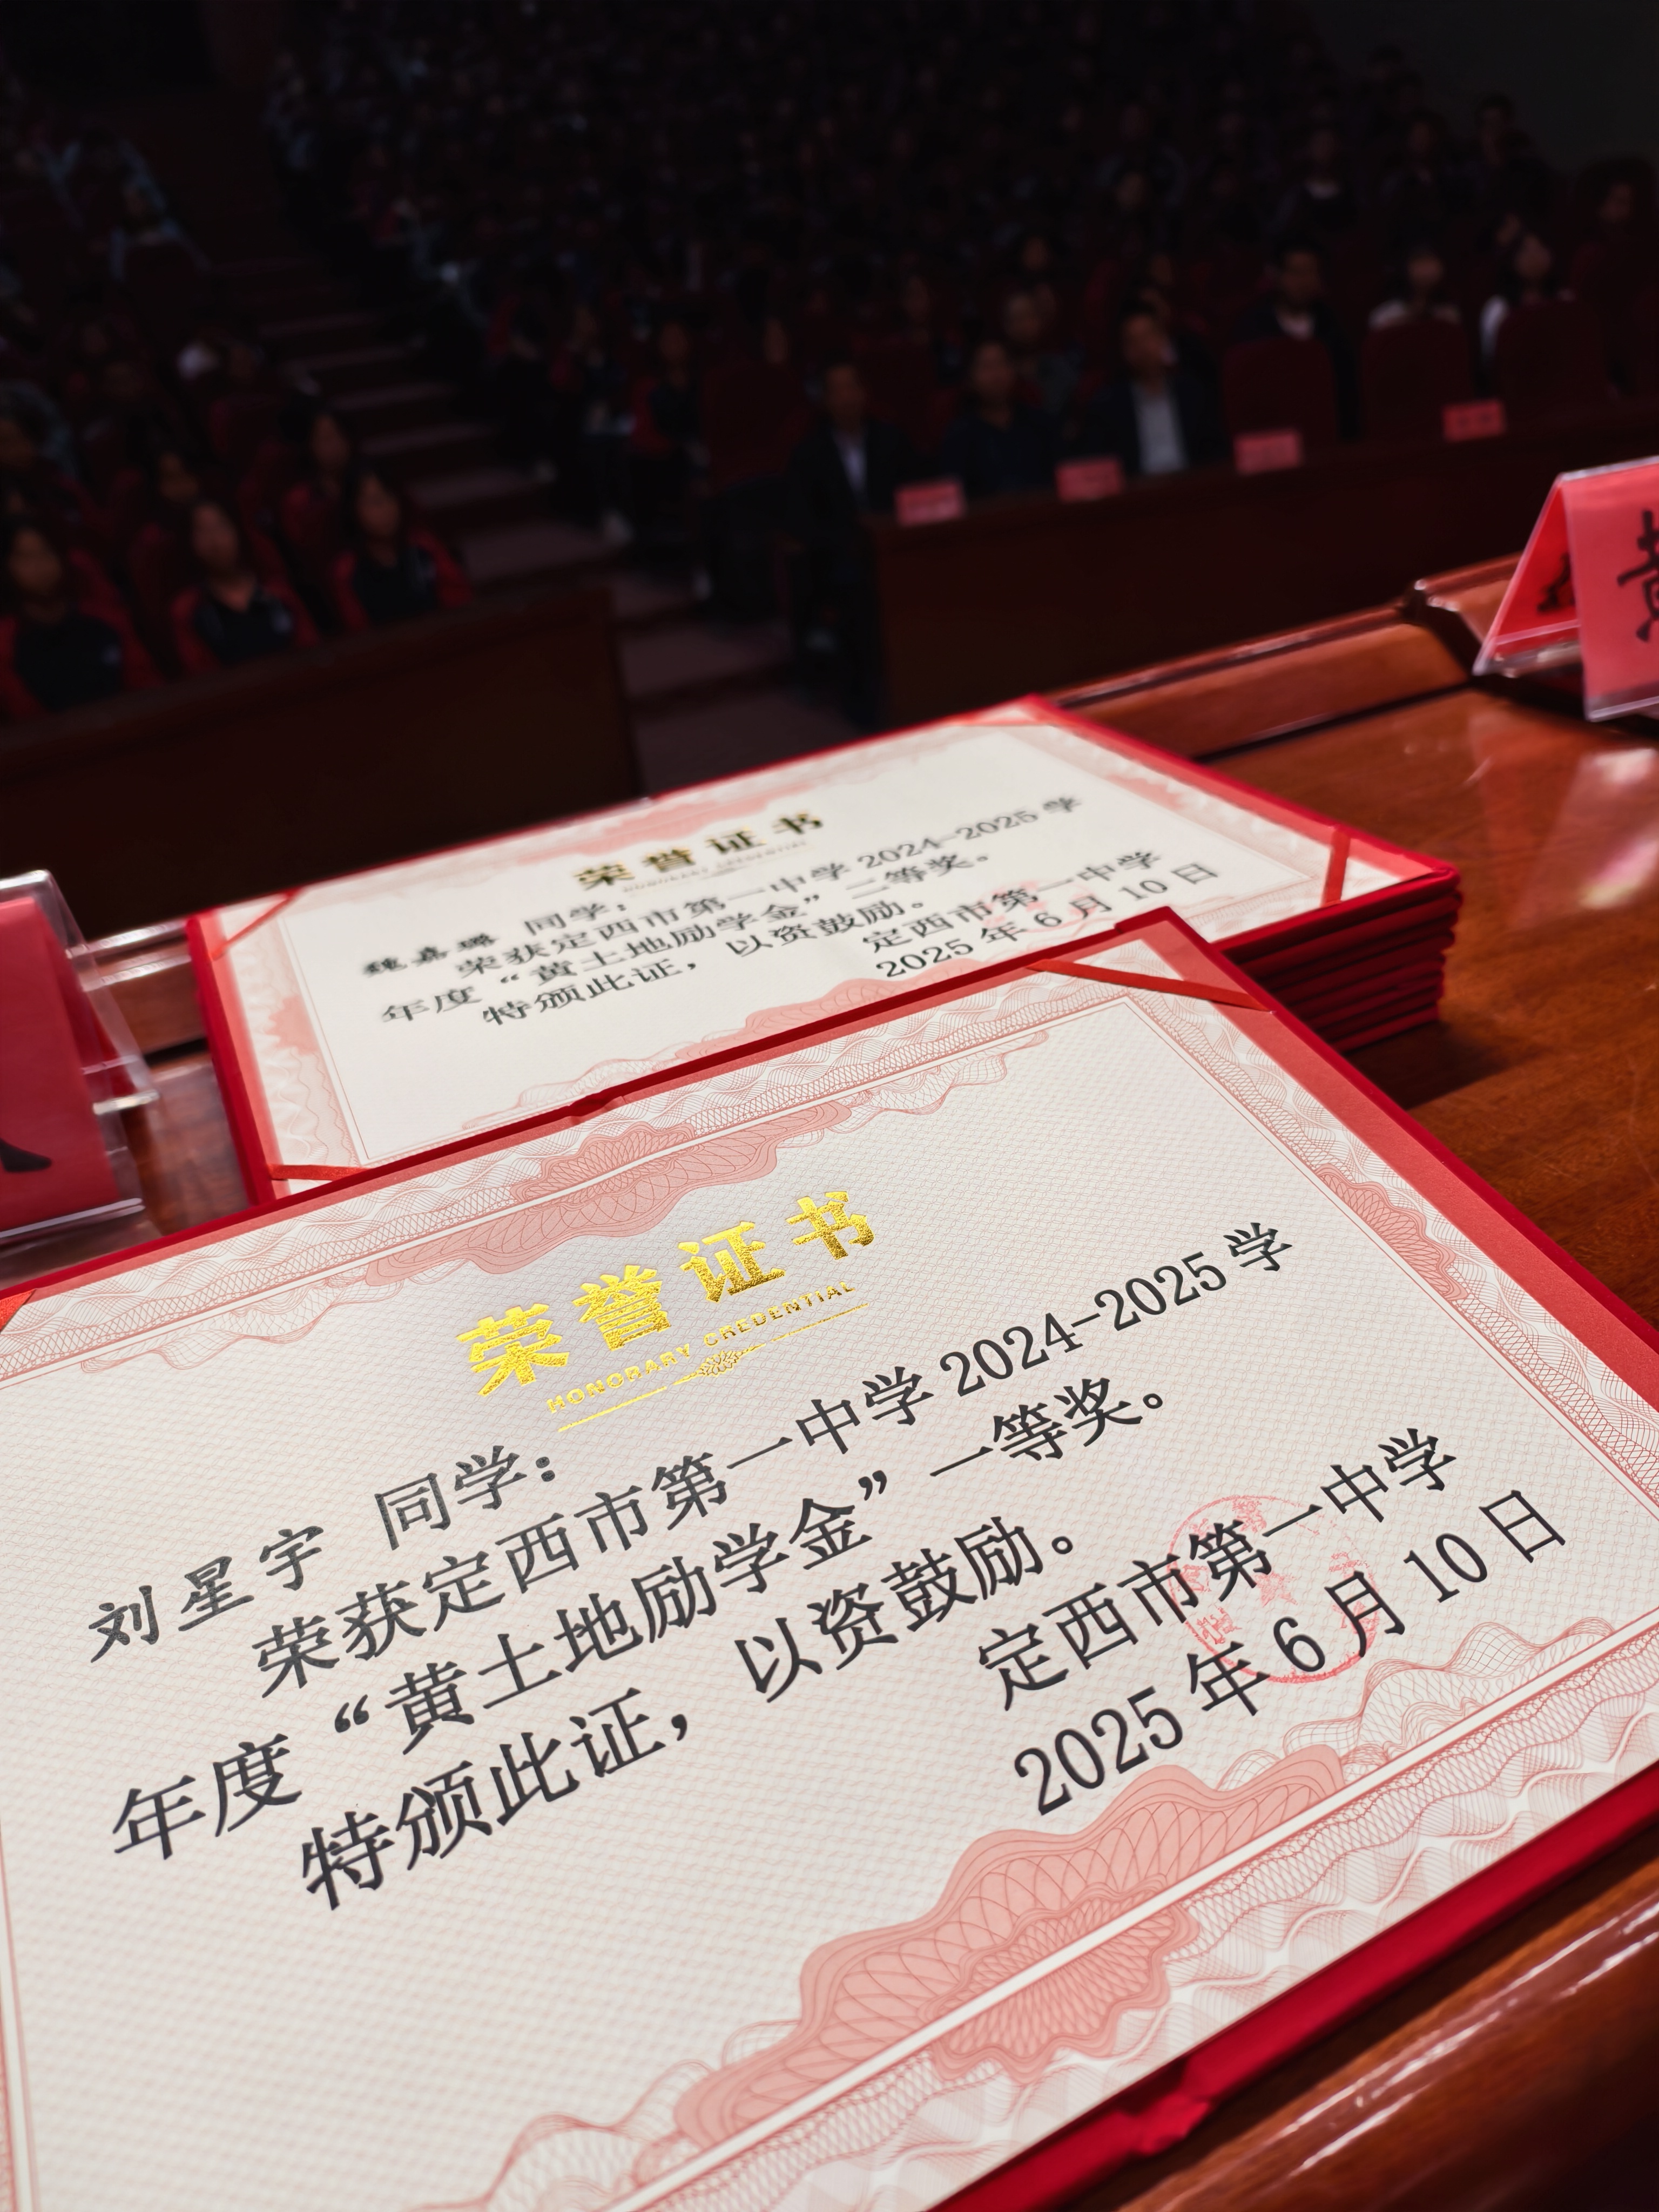 荣誉证书
HONORARY CREDENTIAL
魏嘉璐 同学：
荣获定西市第一中学 2024-2025 学
年度 “黄土地励学金” 二等奖。
特颁此证， 以资鼓励。
定西市第一中学
2025 年 6 月 10 日
荣誉证书
HONORARY CREDENTIAL
刘星宇 同学：
荣获定西市第一中学 2024-2025 学
年度 “黄土地励学金” 一等奖。
特颁此证， 以资鼓励。
定西市第一中学
2025 年 6 月 10 日